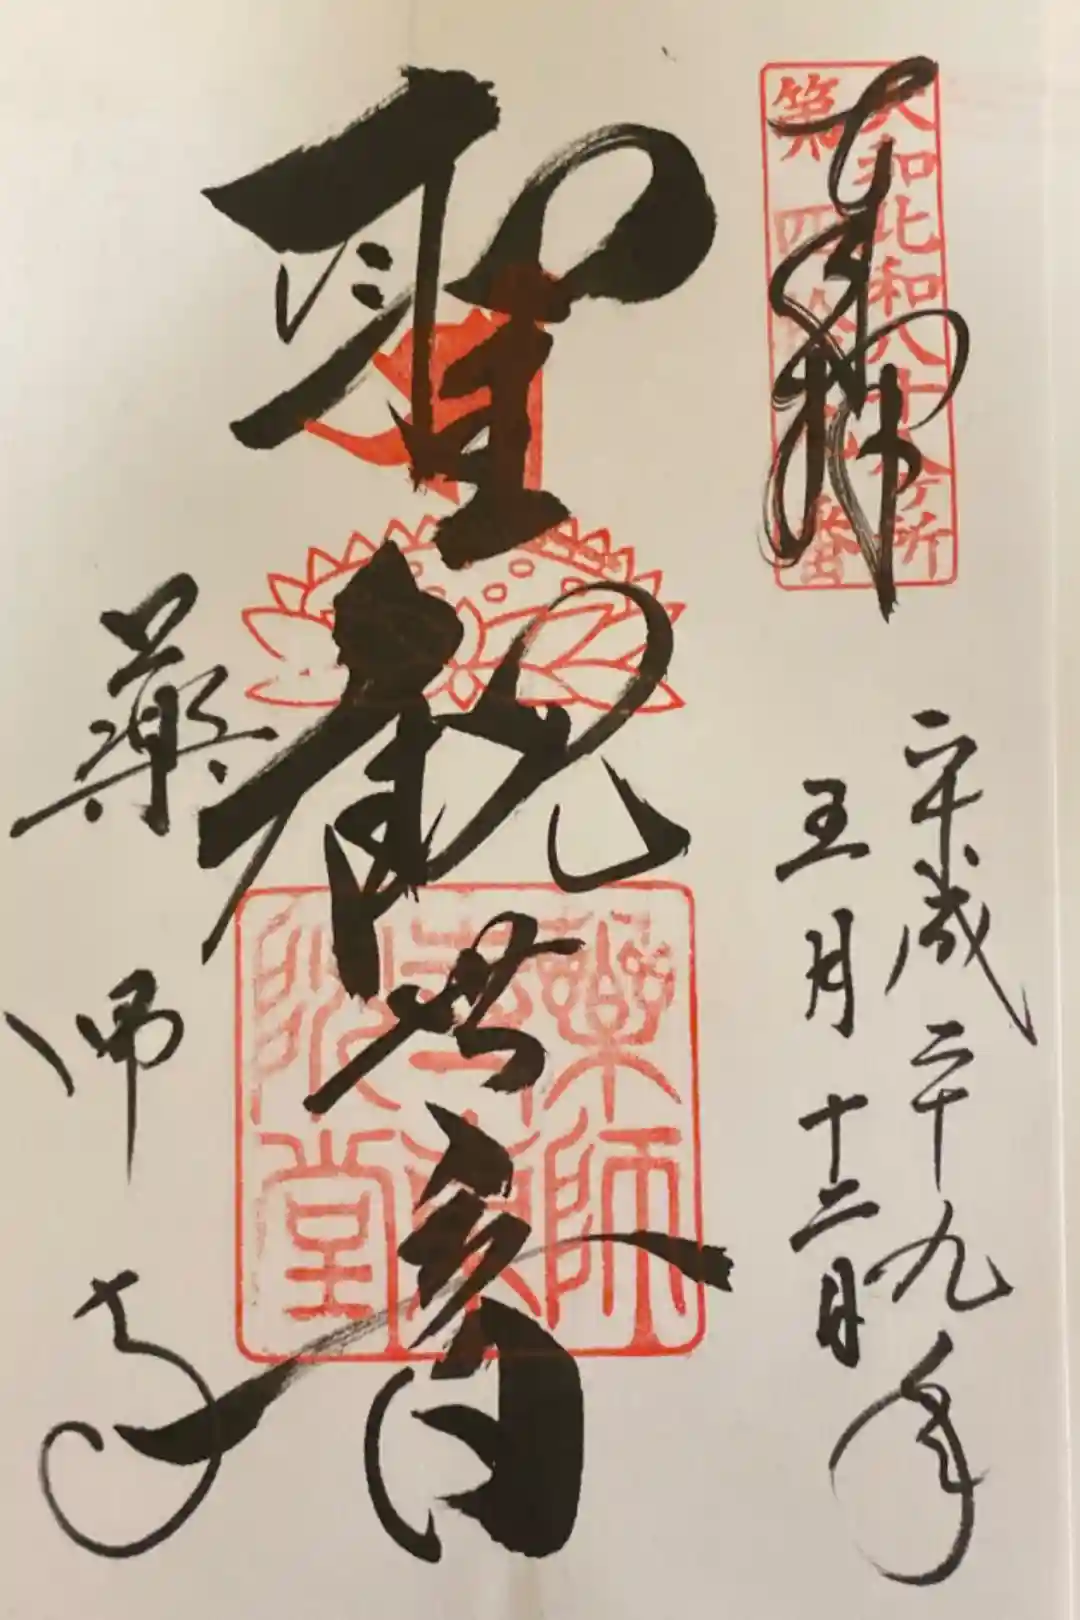 奉拝
大和北和八十八ヶ所
第四拾番
平成二十九年
五月十二日
聖観世音
藥師寺東院堂
藥師寺